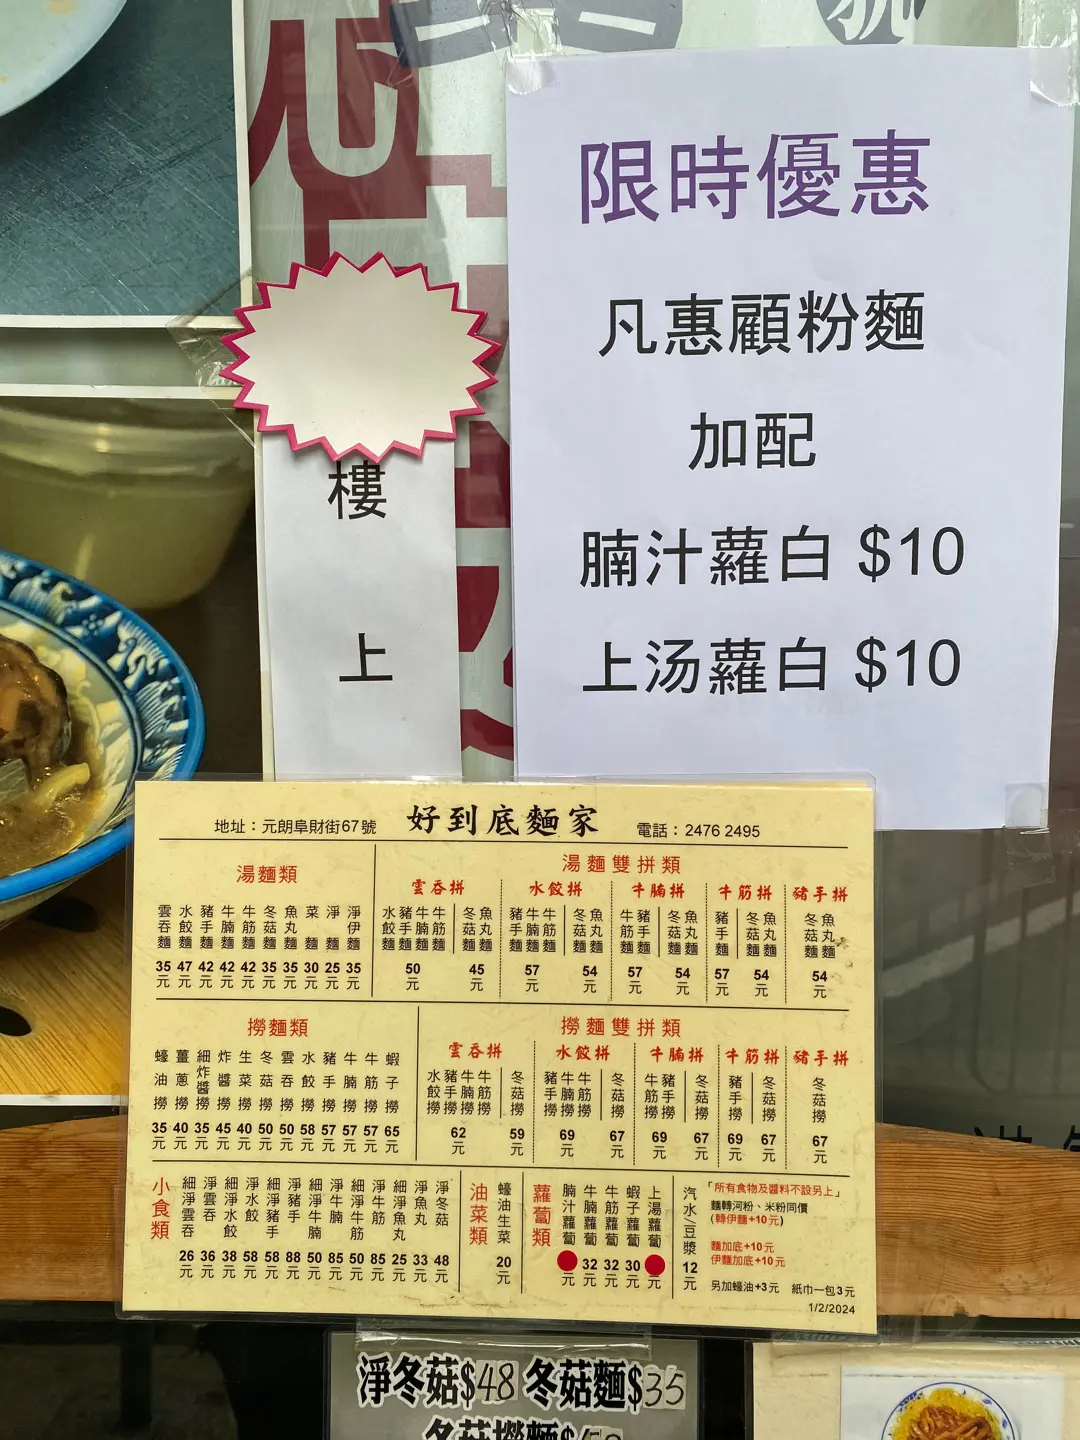 限時優惠
凡惠顧粉麵
加配
腩汁蘿白 $10
上汤蘿白 $10
樓
上
地址：元朗阜財街67號 好到底麵家 電話：2476 2495
湯麵類
雲吞麵 水餃麵 豬手麵 牛腩麵 牛筋麵 冬菇麵 魚丸麵 菜麵 淨麵 淨伊麵
35元 47元 42元 42元 42元 35元 35元 30元 25元 35元
湯麵雙拼類
雲吞拼 水餃拼 牛腩拼 牛筋拼 豬手拼
水餃麵 豬手麵 牛腩麵 牛筋麵 冬菇麵 魚丸麵 豬手麵 牛腩麵 牛筋麵 冬菇麵 魚丸麵 牛筋麵 豬手麵 冬菇麵 魚丸麵 豬手麵 冬菇麵 魚丸麵 冬菇麵 魚丸麵
50元 45元 57元 54元 57元 54元 57元 54元 54元
撈麵類
蠔油撈 薑蔥撈 細炸醬撈 炸醬撈 生菜撈 冬菇撈 雲吞撈 水餃撈 豬手撈 牛腩撈 牛筋撈 蝦子撈
35元 40元 35元 45元 40元 50元 50元 58元 57元 57元 57元 65元
撈麵雙拼類
雲吞拼 水餃拼 牛腩拼 牛筋拼 豬手拼
水餃撈 豬手撈 牛腩撈 牛筋撈 冬菇撈 豬手撈 牛腩撈 牛筋撈 冬菇撈 牛筋撈 豬手撈 冬菇撈 豬手撈 冬菇撈 冬菇撈
62元 59元 69元 67元 69元 67元 69元 67元 67元
小食類
細淨雲吞 淨雲吞 細淨水餃 淨水餃 細淨豬手 淨豬手 細淨牛腩 淨牛腩 細淨牛筋 淨牛筋 細淨魚丸 淨魚丸 淨冬菇
26元 36元 38元 58元 58元 88元 50元 85元 50元 85元 25元 33元 48元
油菜類
蠔油生菜
20元
蘿蔔類
腩汁蘿蔔 牛腩蘿蔔 牛筋蘿蔔 蝦子蘿蔔 上湯蘿蔔
元 32元 32元 30元 元
汽水/豆漿
12元
「所有食物及醬料不設另上」
麵轉河粉、米粉同價
(轉伊麵+10元)
麵加底+10元
伊麵加底+10元
另加蠔油+3元 紙巾一包3元
1/2/2024
淨冬菇$48 冬菇麵$35